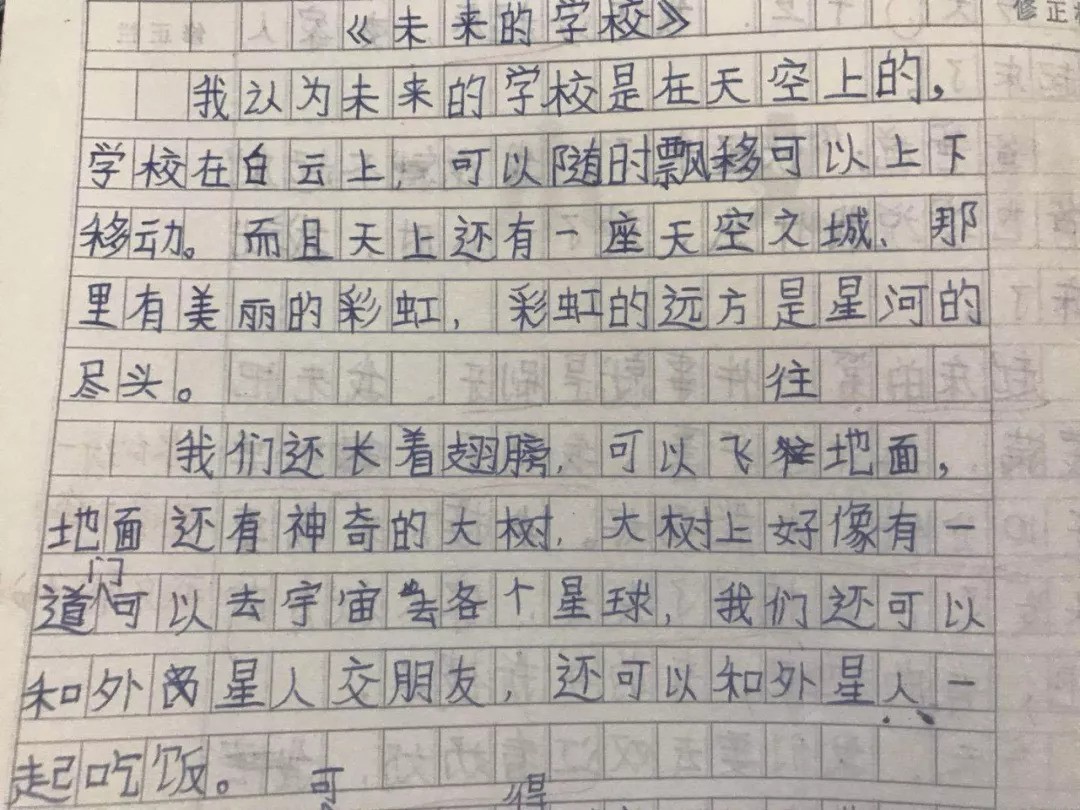 《未来的学校》
我认为未来的学校是在天空上的,
学校在白云上,可以随时飘移可以上下
移动。而且天上还有一座天空之城、那
里有美丽的彩虹,彩虹的远方是星河的
尽头。
往
我们还长着翅膀,可以飞地面,
地面还有神奇的大树,大树上好像有一
门
道可以去宇宙去各个星球,我们还可以
和外星人交朋友,还可以和外星人一
起吃饭。
可 得
修正